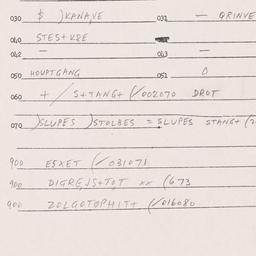 030 $ )KANA,VE 032 — QRINVE
040 STES+KRE
042 — 043 —
050 HOUPTGANG 051 0
060 + / S+TANG+ (/002070 DROT
070 )SLUPES )STOLBES = SLUPES STANG+ (2
900 ESKET (/031071
900 DIGREJS+TOT xx (673
900 ZOLGOTOPHIT+ (/016080